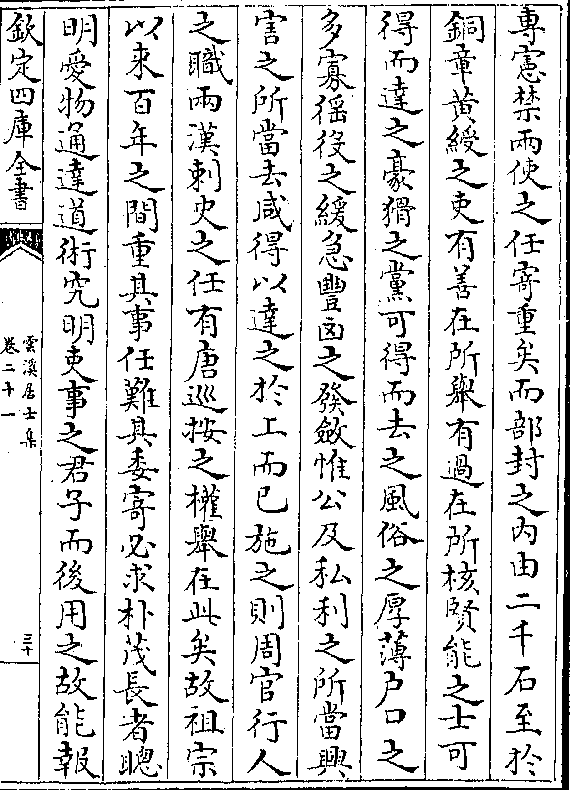 專憲禁兩使之任寄重矣而部封之内由二千石至於
銅章黃綬之吏有善在所舉有過在所核賢能之士可
得而達之豪猾之黨可得而去之風俗之厚薄户口之
多寡徭役之緩急豐凶之發斂惟公及私利之所當興
害之所當去咸得以達之於上而已施之則周官行人
之職兩漢刺史之任有唐巡按之權舉在此矣故祖宗
以來百年之間重其事任難其委寄必求朴茂長者聰
明愛物通達道術究明吏事之君子而後用之故能報
欽定四庫全書
雲溪居士集
卷二十一
三十